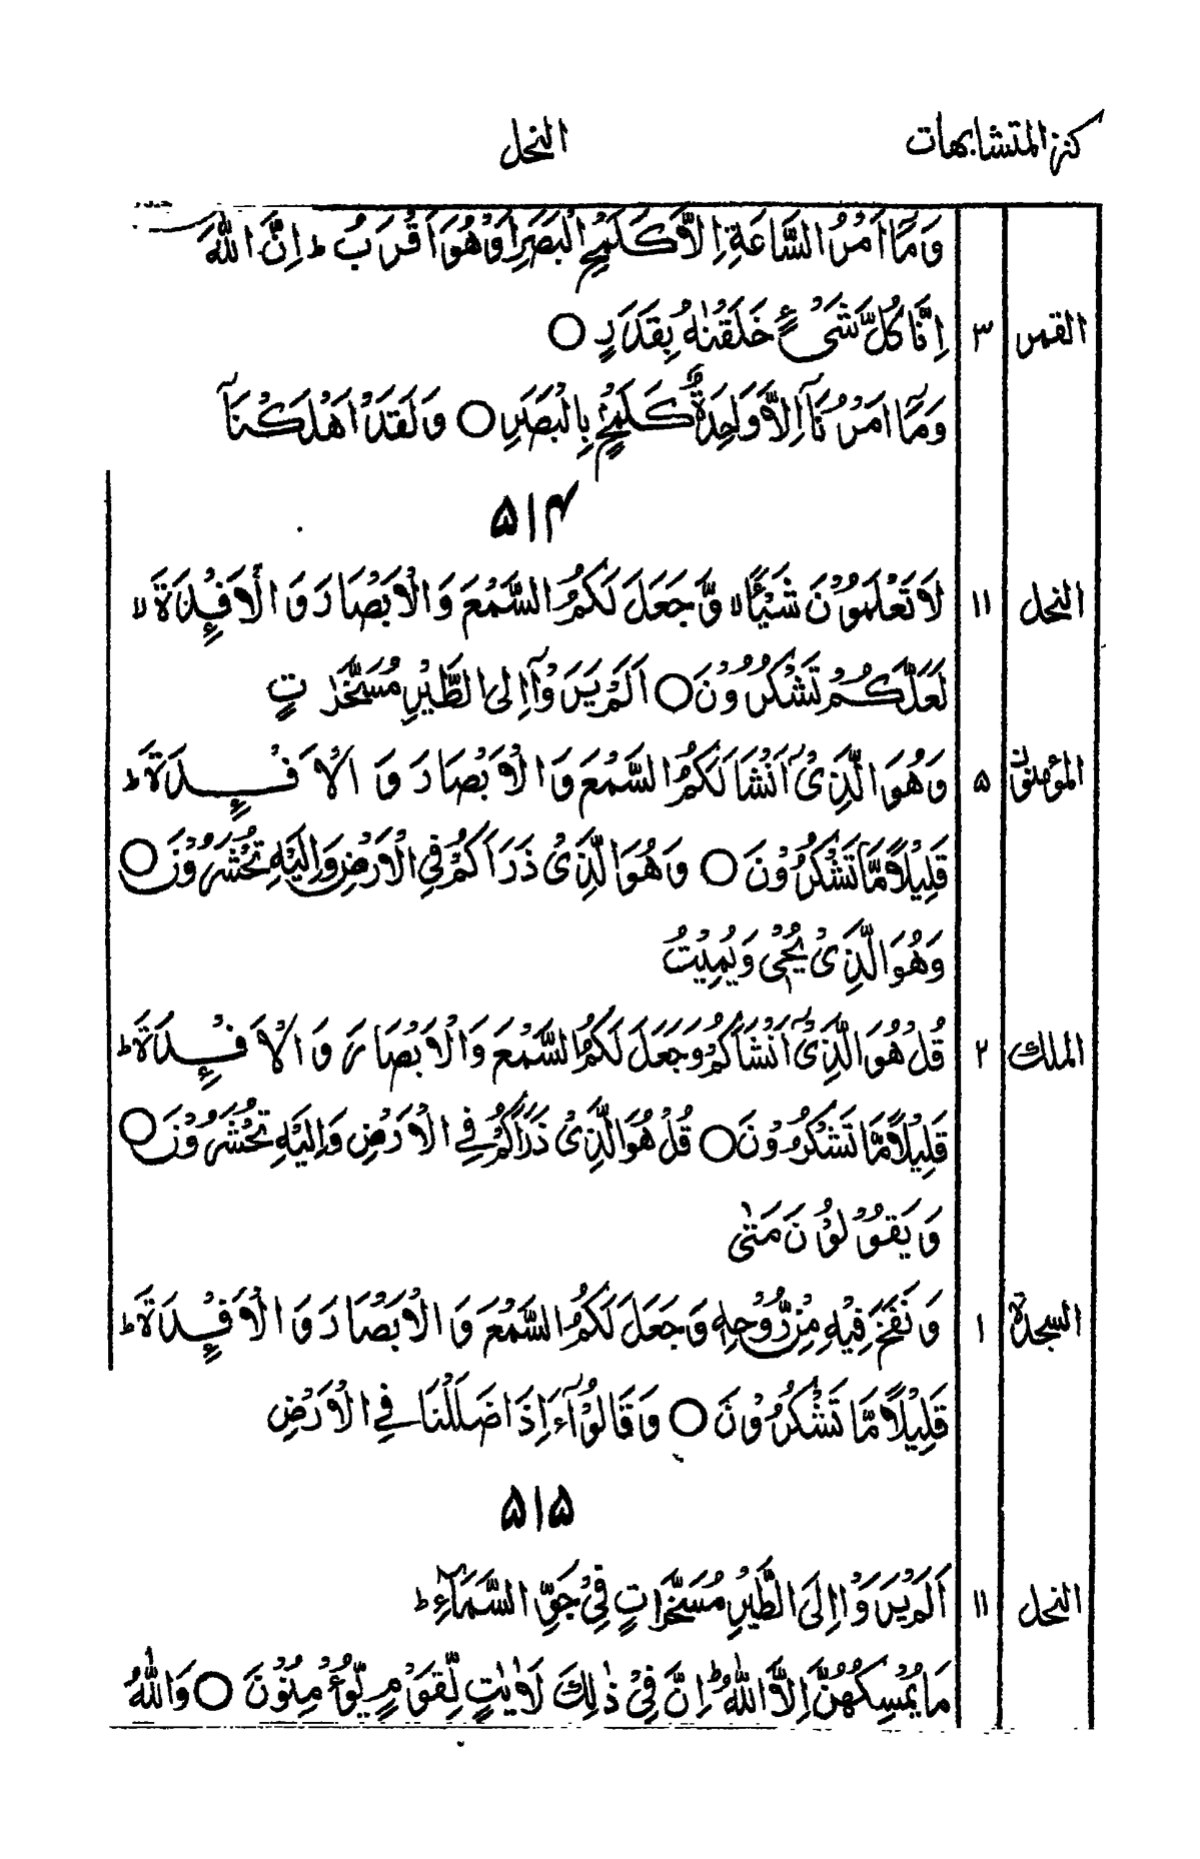 كنز المتشابهات النحل
وَمَآ اَمْرُ السَّاعَةِ اِلَّا كَلَمْحِ الْبَصَرِ اَوْ هُوَ اَقْرَبُ ؕ اِنَّ اللّٰهَ
القمر ٣ اِنَّا كُلَّ شَیْءٍ خَلَقْنٰهُ بِقَدَرٍ ○
وَمَآ اَمْرُنَآ اِلَّا وَاحِدَةٌ كَلَمْحٍۭ بِالْبَصَرِ ○ وَلَقَدْ اَهْلَكْنَآ
۵۱۴
النحل ۱۱ لَا تَعْلَمُوْنَ شَيْـًٔا ۙ وَّجَعَلَ لَكُمُ السَّمْعَ وَالْاَبْصَارَ وَالْاَفْـِٕدَةَ ۙ
لَعَلَّكُمْ تَشْكُرُوْنَ ○ اَلَمْ يَرَوْا اِلَى الطَّيْرِ مُسَخَّرٰتٍ
المؤمنون ۵ وَهُوَ الَّذِیْ اَنْشَاَ لَكُمُ السَّمْعَ وَالْاَبْصَارَ وَالْاَفْـِٕدَةَ ؕ
قَلِيْلًا مَّا تَشْكُرُوْنَ ○ وَهُوَ الَّذِیْ ذَرَاَكُمْ فِی الْاَرْضِ وَاِلَيْهِ تُحْشَرُوْنَ ○
وَهُوَ الَّذِیْ يُحْیٖ وَيُمِيْتُ
الملك ۲ قُلْ هُوَ الَّذِیْۤ اَنْشَاَكُمْ وَجَعَلَ لَكُمُ السَّمْعَ وَالْاَبْصَارَ وَالْاَفْـِٕدَةَ ؕ
قَلِيْلًا مَّا تَشْكُرُوْنَ ○ قُلْ هُوَ الَّذِیْ ذَرَاَكُمْ فِی الْاَرْضِ وَاِلَيْهِ تُحْشَرُوْنَ ○
وَيَقُوْلُوْنَ مَتٰى
السجدة ۱ وَنَفَخَ فِيْهِ مِنْ رُّوْحِهٖ وَجَعَلَ لَكُمُ السَّمْعَ وَالْاَبْصَارَ وَالْاَفْـِٕدَةَ ؕ
قَلِيْلًا مَّا تَشْكُرُوْنَ ○ وَقَالُوْٓا ءَاِذَا ضَلَلْنَا فِی الْاَرْضِ
۵۱۵
النحل ۱۱ اَلَمْ يَرَوْا اِلَى الطَّيْرِ مُسَخَّرَاتٍ فِیْ جَوِّ السَّمَآءِ ؕ
مَا يُمْسِكُهُنَّ اِلَّا اللّٰهُ ؕ اِنَّ فِیْ ذٰلِكَ لَاٰيٰتٍ لِّقَوْمٍ يُّؤْمِنُوْنَ ○ وَاللّٰهُ